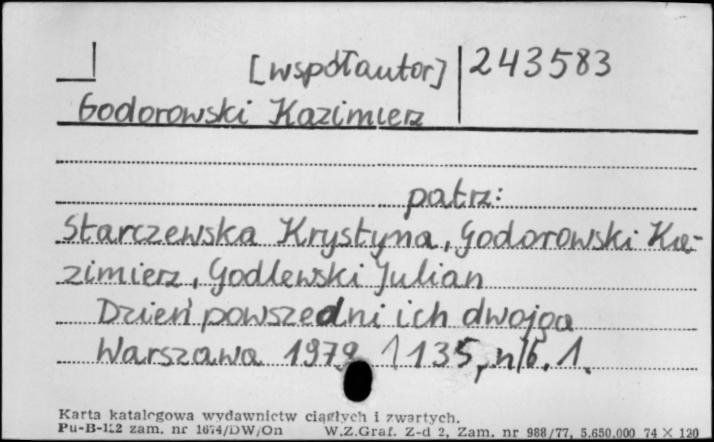 [współautor] 243583
Godorowski Kazimierz
patrz:
Starczewska Krystyna, Godorowski Ka-
zimierz, Godlewski Julian
Dzień powszedni ich dwojga
Warszawa 1979 135, n/b. 1.
Karta katalogowa wydawnictw ciągłych i zwartych.
Pu-B-112 zam. nr 1674/DW/On W.Z.Graf. Z-d 2, Zam. nr 988/77, 5.650.000 74 × 120